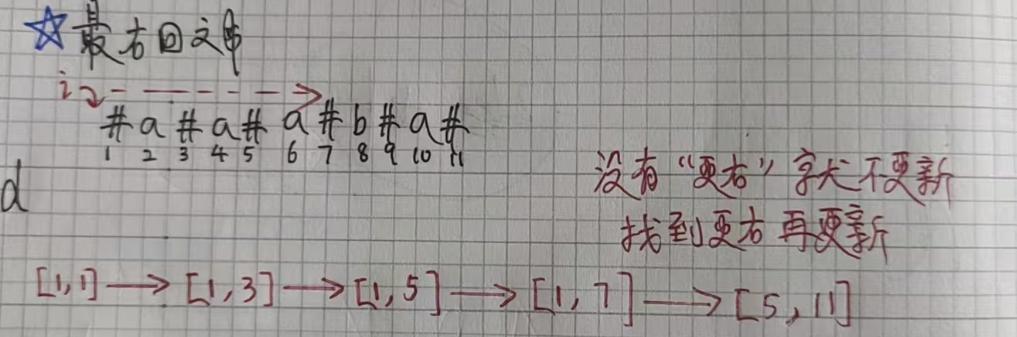 ☆最右回文串
i
#a#a#a#b#a#
1 2 3 4 5 6 7 8 9 10 11
没有“更右”就不更新
d
找到更右再更新
[1,1]→[1,3]→[1,5]→[1,7]→[5,11]